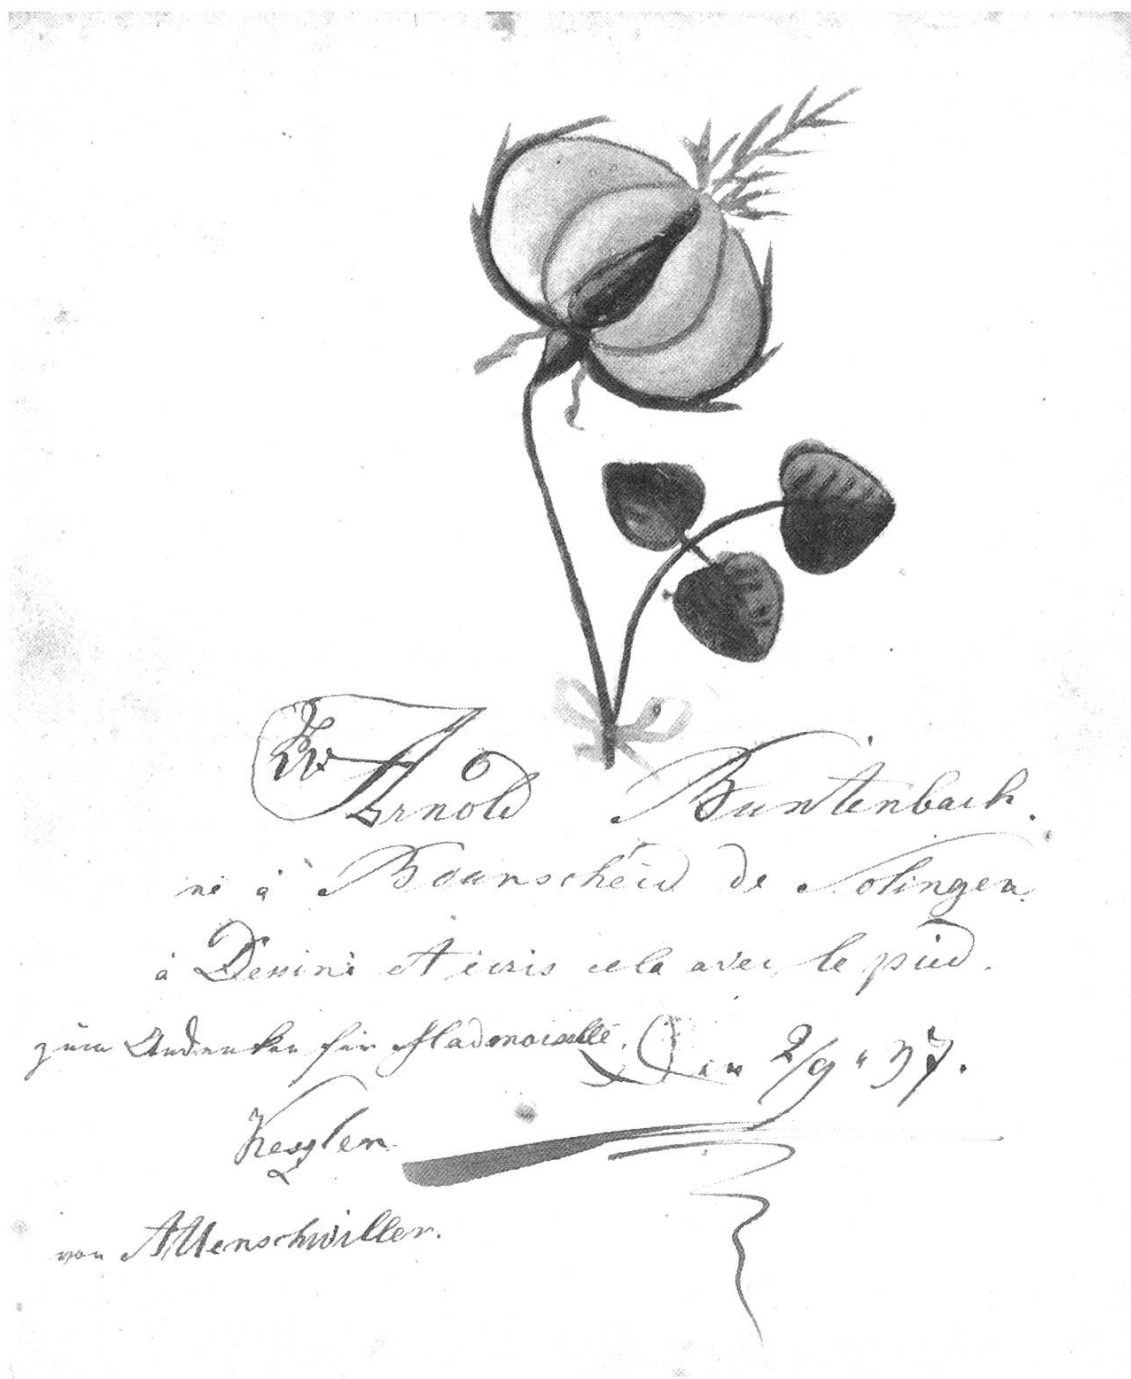 Arnold Buntenbach.
né à Bounscheid de Solingen
à Dessiné et ecris cela avec le pied.
zum Andenken für Mademoiselle. Den 2/9 37.
Kesslen
von Allenschwiller.